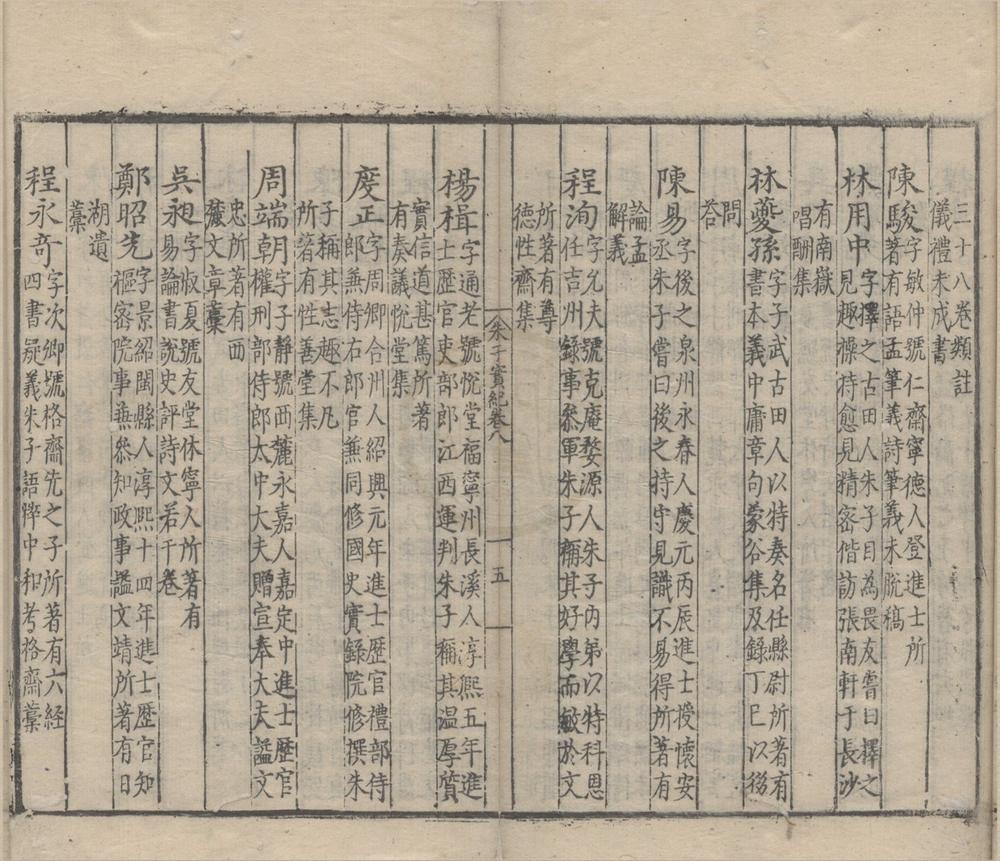 三十八卷類註
儀禮未成書
陳駿字敏仲號仁齋寧德人登進士所
著有語孟筆義詩筆義未脫稿
林用中字擇之古田人朱子目為畏友嘗曰擇之
見趣操持愈見精密偕訪張南軒于長沙
有南嶽
唱酬集
林夔孫字子武古田人以特奏名任縣尉所著有
書本義中庸章句蒙谷集及錄丁巳以後
問
荅
陳易字後之泉州永春人慶元丙辰進士授懷安
丞朱子嘗曰後之持守見識不易得所著有
論孟
解義
程洵字允夫號克庵婺源人朱子內弟以特科恩
任吉州錄事叅軍朱子稱其好學而敏於文
所著有尊
德性齋集
朱子實紀卷八
五
楊楫字通老號悅堂福寧州長溪人淳熙五年進
士歷官吏部郎江西運判朱子稱其温厚質
實信道甚篤所著
有奏議悅堂集
度正字周卿合州人紹興元年進士歷官禮部侍
郎兼侍右郎官兼同修國史實錄院修撰朱
子稱其志趣不凡
所著有性善堂集
周端朝字子靜號西麓永嘉人嘉定中進士歷官
權刑部侍郎太中大夫贈宣奉大夫謚文
忠所著有西
麓文章藁
吳昶字叔夏號友堂休寧人所著有
易論書說史評詩文若干卷
鄭昭先字景紹閩縣人淳熙十四年進士歷官知
樞密院事兼叅知政事謚文靖所著有日
湖遺
藁
程永奇字次卿號格齋先之子所著有六經
四書疑義朱子語粹中和考格齋藁